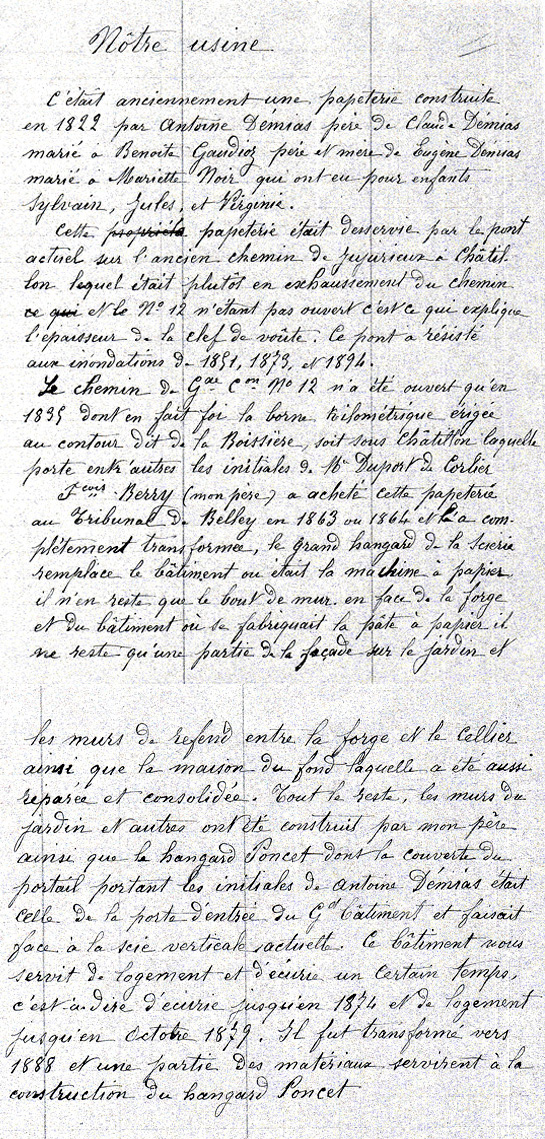 Nôtre usine
C'était anciennement une papeterie construite
en 1822 par Antoine Démias père de Claude Démias
marié à Benoite Gaudioz père et mère de Eugène Démias
marié à Mariette Noir qui ont eu pour enfants
Sylvain, Jules, et Virginie.
Cette propriété papeterie était desservie par le pont
actuel sur l'ancien chemin de Jujurieux à Châtil
lon lequel était plutot en exhaussement du chemin
ce qui et le No 12 n'étant pas ouvert c'est ce qui explique
l'epaisseur de la clef de voûte. Ce pont a résisté
aux inondations de 1851, 1873, et 1894.
Le chemin de Gde Con No 12 n'a été ouvert qu'en
1835 dont en fait foi la borne Kilométrique érigée
au contour dit de la Boissière, soit sous Châtillon laquelle
porte entre autres les initiales de Bn Duport de Corlier
Fcois Berry (mon père) a acheté cette papeterie
au Tribunal de Belley en 1863 ou 1864 et l'a com-
plètement transformée, le grand hangard de la Scierie
remplace le bâtiment ou était la machine à papier,
il n'en reste que le bout de mur en face de la forge
et du bâtiment ou se fabriquait la pâte à papier il
ne reste qu'une partie de la façade sur le jardin et
les murs de refend entre la forge et le cellier
ainsi que la maison du fond laquelle a été aussi
reparée et consolidée. Tout le reste, les murs du
jardin et autres ont été construit par mon père
ainsi que le hangard Poncet dont la couverte du
portail portant les initiales de Antoine Démias était
celle de la porte d'entrée du Gd bâtiment et faisait
face à la scie verticale actuelle. Ce bâtiment nous
servit de logement et d'écurie un certain temps,
c'est-à-dire d'écurie jusqu'en 1874 et de logement
jusqu'en Octobre 1879. Il fut transformé vers
1888 et une partie des matériaux servirent à la
construction du hangard Poncet